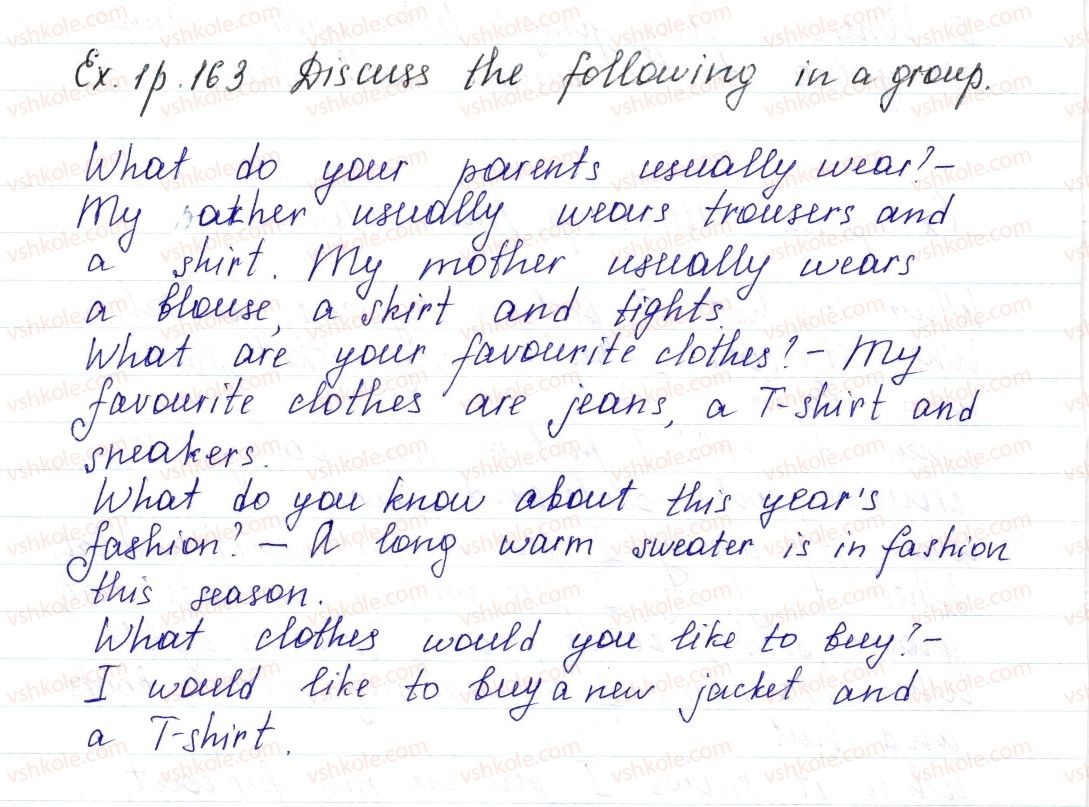 Ex. 1 p. 163 Discuss the following in a group.
What do your parents usually wear? –
My father usually wears trousers and
a shirt. My mother usually wears
a blouse, a skirt and tights.
What are your favourite clothes? – My
favourite clothes are jeans, a T-shirt and
sneakers.
What do you know about this year's
fashion? – A long warm sweater is in fashion
this season.
What clothes would you like to buy? –
I would like to buy a new jacket and
a T-shirt.
vshkole.com